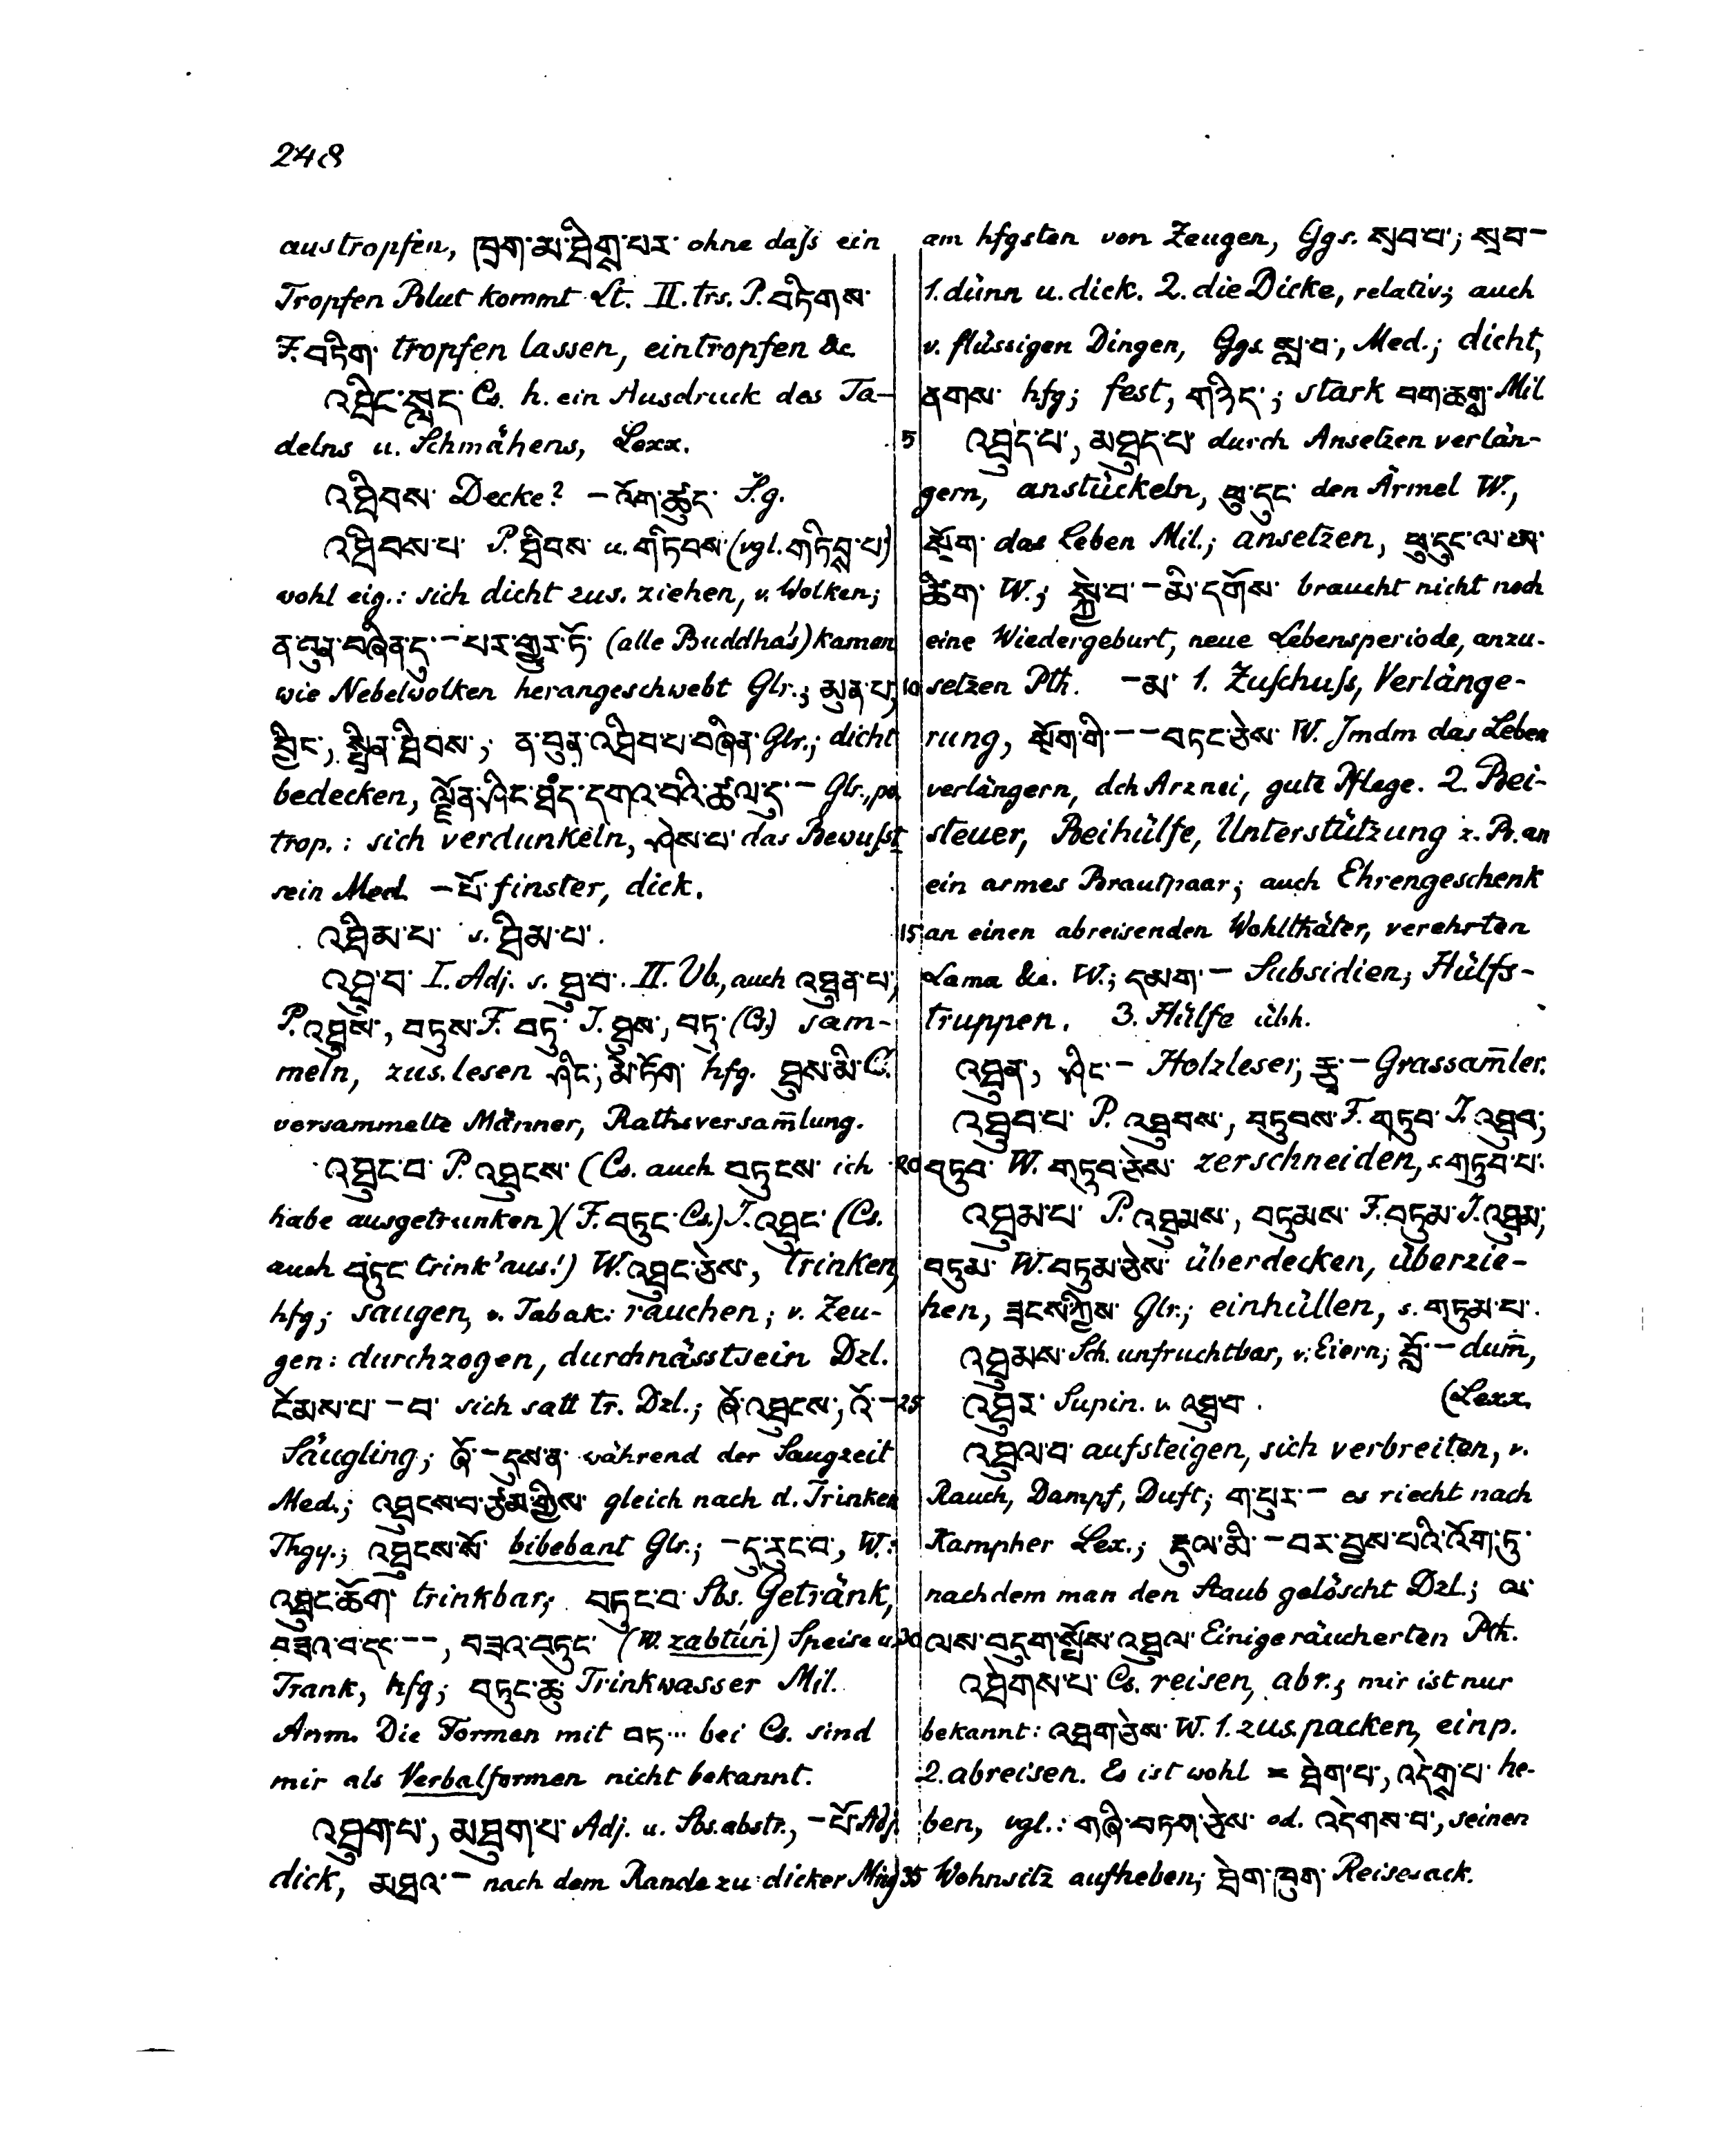 248
austropfen, ཁྲག་མ་ཐིགས་པར་ ohne daſs ein
Tropfen Blut kommt Lt. II. trs. P. བཏིགས་
F. བཏིག་ tropfen lassen, eintropfen &c.
འཐིང་སླད་ Cs. h. ein Ausdruck des Ta-
delns u. Schmähens, Lexx.
འཐིབས་ Decke? – འོག་ཚུད་ S.g.
འཐིབས་པ་ P. ཐིབས་ u. གཏིབས་ (vgl. གཏིབས་པ)
wohl eig.: sich dicht zus. ziehen, v. Wolken;
ན་བུན་བཞིན་དུ་ – པར་གྱུར་ཏོ་ (alle Buddha's) kamen
wie Nebelwolken herangeschwebt Glr.; མུན་པ,
སྤྲིན་ཐིབས་; ན་བུན་འཐིབ་པ་བཞིན་ Glr.; dicht
bedecken, ལྗོན་ཤིང་ དགའ་བའི་ཚལ་དུ་ – Glr., po.
trop.: sich verdunkeln, ཤེས་པ་ das Bewuſst
sein Med. – པོ་ finster, dick.
འཐིམ་པ་ s. ཐིམ་པ་.
འཐུ་བ་ I. Adj. s. ཐུ་བ་. II. Vb., auch འཐུན་པ་,
P. འཐུས་, བཏུས་ F. བཏུ་ I. ཐུས་, བཏུ་ (Cs.) sam-
meln, zus. lesen ཤིང་, མེ་ཏོག་ hfg. ཐུས་མི་ C.
versammelte Männer, Rathsversam̄lung.
འཐུང་བ་ P. འཐུངས་ (Cs. auch བཏུངས་ ich
habe ausgetrunken) (F. བཏུང་ Cs.) I. འཐུང་ (Cs.
auch བཏུང་ trink' aus!) W. འཐུང་ཅེས་, trinken,
hfg; saugen, v. Tabak: rauchen; v. Zeu-
gen: durchzogen, durchnässt sein Dzl.
ངོམས་པ་ – བ་ sich satt tr. Dzl.; ནུ་འཐུངས་, འོ་ –
Säugling; ནུ་ – དུས་ན་ während der Saugzeit
Med.; འཐུངས་བ་ཙམ་གྱིས་ gleich nach d. Trinken
Thgy.; འཐུངས་སོ་ bibebant Glr.; – དུ་རུང་བ་, W.:
འཐུང་ཆོག་ trinkbar; བཏུང་བ་ Sbs. Getränk,
བཟའ་བ་དང་ – –, བཟའ་བཏུང་ (W. zabtúṅ) Speise u.
Trank, hfg; བཏུང་ཆུ་ Trinkwasser Mil.
Anm. Die Formen mit བཏ··· bei Cs. sind
mir als Verbalformen nicht bekannt.
འཐུག་པ་, མཐུག་པ་ Adj. u. Sbs. abstr., – པོ་ Adj.
dick, མཐའ་ – nach dem Rande zu dicker Mng
am hfgsten von Zeugen, Ggs. སྲབ་པ་; སྲབ་ –
1. dünn u. dick. 2. die Dicke, relativ; auch
v. flüssigen Dingen, Ggs. སླ་བ་, Med.; dicht,
ནགས་ hfg; fest, གཉིད་; stark བག་ཆགས་ Mil
5 འཐུད་པ་, མཐུད་པ་ durch Ansetzen verlän-
gern, anstückeln, ཕུ་དུང་ den Ärmel W.,
སྲོག་ das Leben Mil.; ansetzen, ཕུ་དུང་ལ་
ཚིག་ W.; སྐྱེ་བ་ – མི་དགོས་ braucht nicht noch
eine Wiedergeburt, neue Lebensperiode, anzu-
10 setzen Pth. – མ་ 1. Zuſchuſs, Verlänge-
rung, སྲོག་གི་ – – བཏང་ཅེས་ W. Jmdm das Leben
verlängern, dch Arznei, gute Pflege. 2. Bei-
steuer, Beihülfe, Unterstützung z. B. an
ein armes Brautpaar; auch Ehrengeschenk
15 an einen abreisenden Wohlthäter, verehrten
Lama &c. W.; དམག་ – Subsidien; Hülfs-
truppen. 3. Hülfe übh.
འཐུན་, ཤིང་ – Holzleser; རྩྭ་ – Grassam̄ler.
འཐུབ་པ་ P. འཐུབས་, བཏུབས་ F. གཏུབ་ I. འཐུབ་,
20 བཏུབ་ W. གཏུབ་ཅེས་ zerschneiden, s. གཏུབ་པ་.
འཐུམ་པ་ P. འཐུམས་, བཏུམས་ F. བཏུམ་ I. འཐུམ་,
བཏུམ་ W. བཏུམ་ཅེས་ überdecken, überzie-
hen, ཟངས་ཀྱིས་ Glr.; einhüllen, s. གཏུམ་པ་.
འཐུམས་ Sch. unfruchtbar, v. Eiern; བློ་ – dum̄,
25 འཐུར་ Supin. v. འཐུ་བ་. (Lexx.
འཐུལ་བ་ aufsteigen, sich verbreiten, v.
Rauch, Dampf, Duft; ག་པུར་ – es riecht nach
Kampher Lex.; རྡུལ་མི་ – བར་བྱས་པའི་འོག་ཏུ་
nachdem man den Staub gelöscht Dzl.; ལ་
30 ལས་བདུག་སྤོས་འཐུལ་ Einige räucherten Pth.
འཐེགས་པ་ Cs. reisen, abr.; mir ist nur
bekannt: འཐག་ཅེས་ W. 1. zus. packen, einp.
2. abreisen. Es ist wohl = ཐེག་པ་, འདེགས་པ་ he-
ben, vgl.: གཞི་བཏག་ཅེས་ od. འདེགས་པ་, seinen
35 Wohnsitz aufheben; ཐེག་ཁུག་ Reisesack.